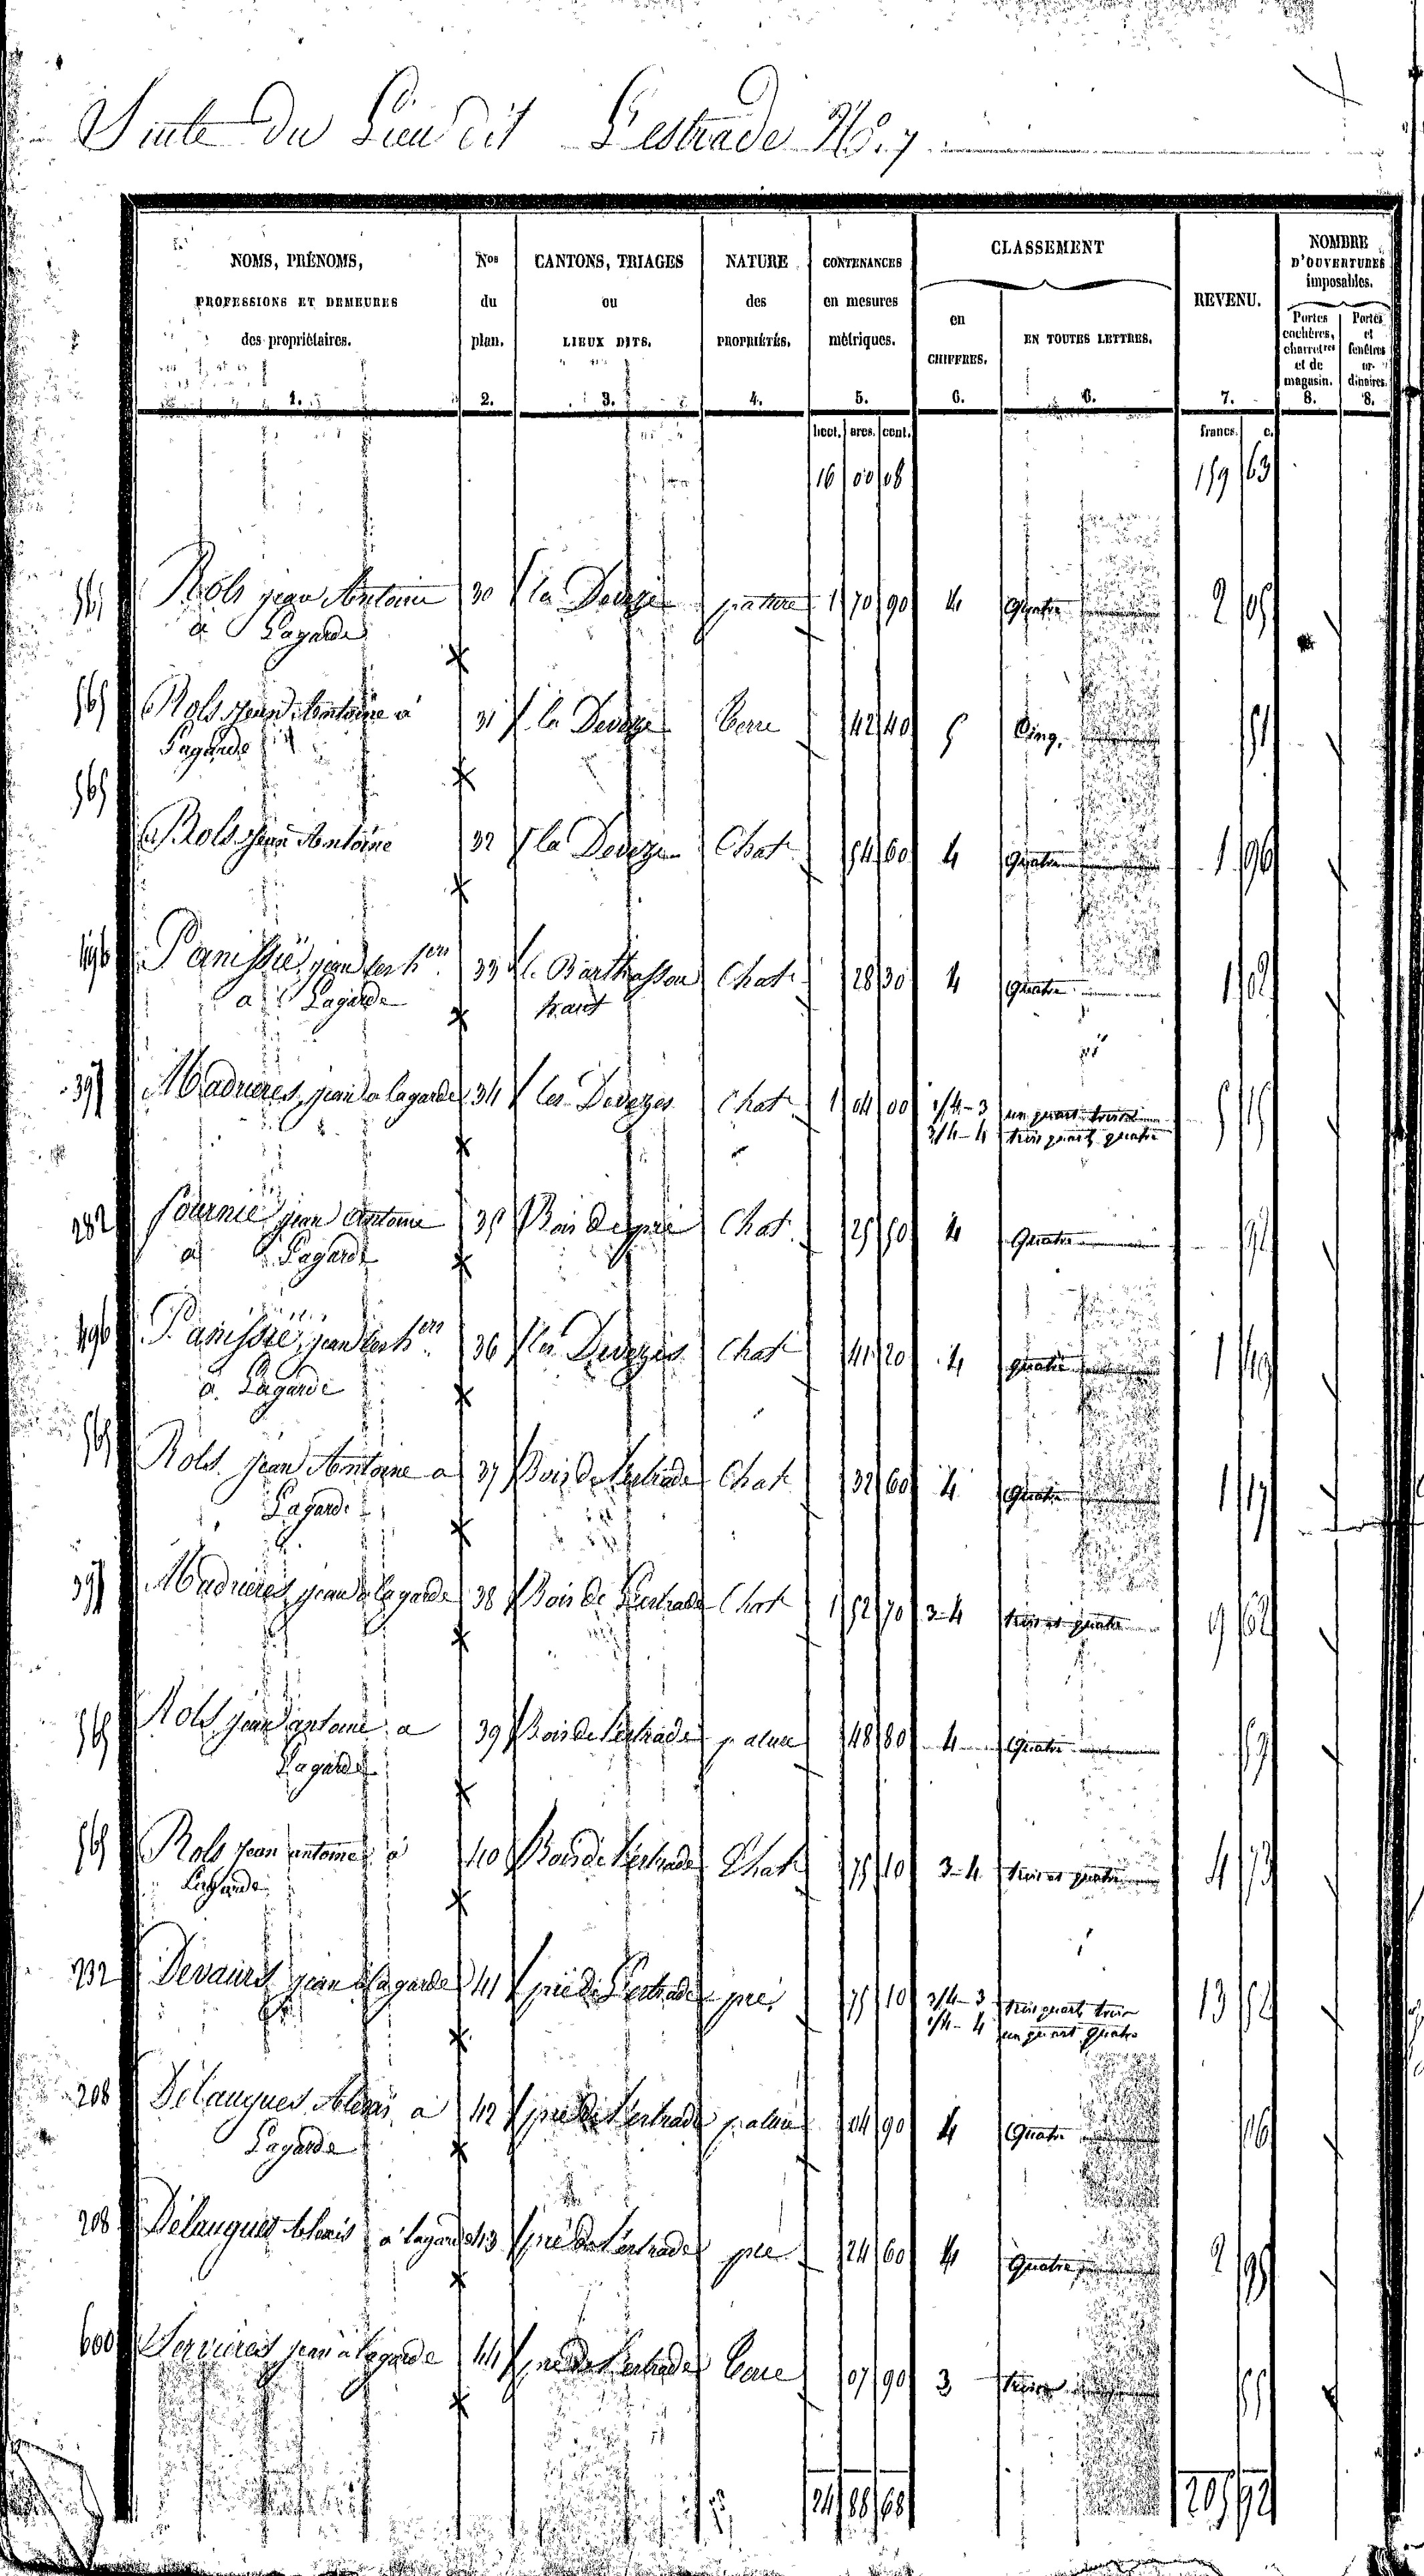 Suite du Lieu dit L'estrade No. 7
NOMS, PRÉNOMS, PROFESSIONS ET DEMEURES des propriétaires. 1.
Nos du plan. 2.
CANTONS, TRIAGES ou LIEUX DITS. 3.
NATURE des PROPRIÉTÉS. 4.
CONTENANCES en mesures métriques. 5.
CLASSEMENT
en CHIFFRES. 6.
EN TOUTES LETTRES. 6.
REVENU. 7.
NOMBRE D'OUVERTURES imposables.
Portes cochères, charretres et de magasin. 8.
Portes et fenêtres or- dinaires. 8.
hect. ares. cent. francs. c.
16 00 08 159 63
565 Rols jean Antoine 30 la Deveze pature 1 70 90 4 Quatre 2 05
a Lagarde
565 Rols Jean Antoine a 31 la Deveze terre 42 40 5 Cinq. 51
Lagarde
565 Rols Jean Antoine 32 la Deveze Chat. 54 60 4 Quatre 1 96
496 Panissié, jean les hers 33 le Barthassou Chat. 28 30 4 Quatre 1 02
a Lagarde haut
397 Madrieres, jean a lagarde 34 les Devezes Chat. 1 04 00 1/4-3 un quart trois 5 15
3/4-4 trois quarts quatre
282 fournié jean Antoine 35 Bois de pré Chat. 25 50 4 Quatre 92
a Lagarde
496 Panissié, jean les hers 36 les Devezes Chat. 41 20 4 quatre 1 49
a Lagarde
565 Rols jean Antoine a 37 Bois de l'estrade Chat. 32 60 4 Quatre 1 17
Lagarde
397 Madrieres, jean a lagarde 38 Bois de L'estrade Chat. 1 52 70 3-4 trois et quatre 9 62
565 Rols jean antoine a 39 Bois de l'estrade pature 48 80 4 Quatre 59
Lagarde
565 Rols jean antoine a 40 Bois de l'estrade Chat. 75 10 3-4 trois et quatre 4 73
Lagarde
232 Devaurs jean a lagarde 41 pré de L'estrade pré 75 10 3/4-3 trois quarts trois 13 52
1/4-4 un quart quatre
208 Délaugues Alexis a 42 pré de l'estrade pature 04 90 4 Quatre 06
Lagarde
208 Délaugues Alexis a lagarde 43 pré de l'estrade pré 24 60 4 Quatre 2 95
600 Servieres, jean a lagarde 44 pré de l'estrade terre 07 90 3 trois 55
24 88 68 205 92